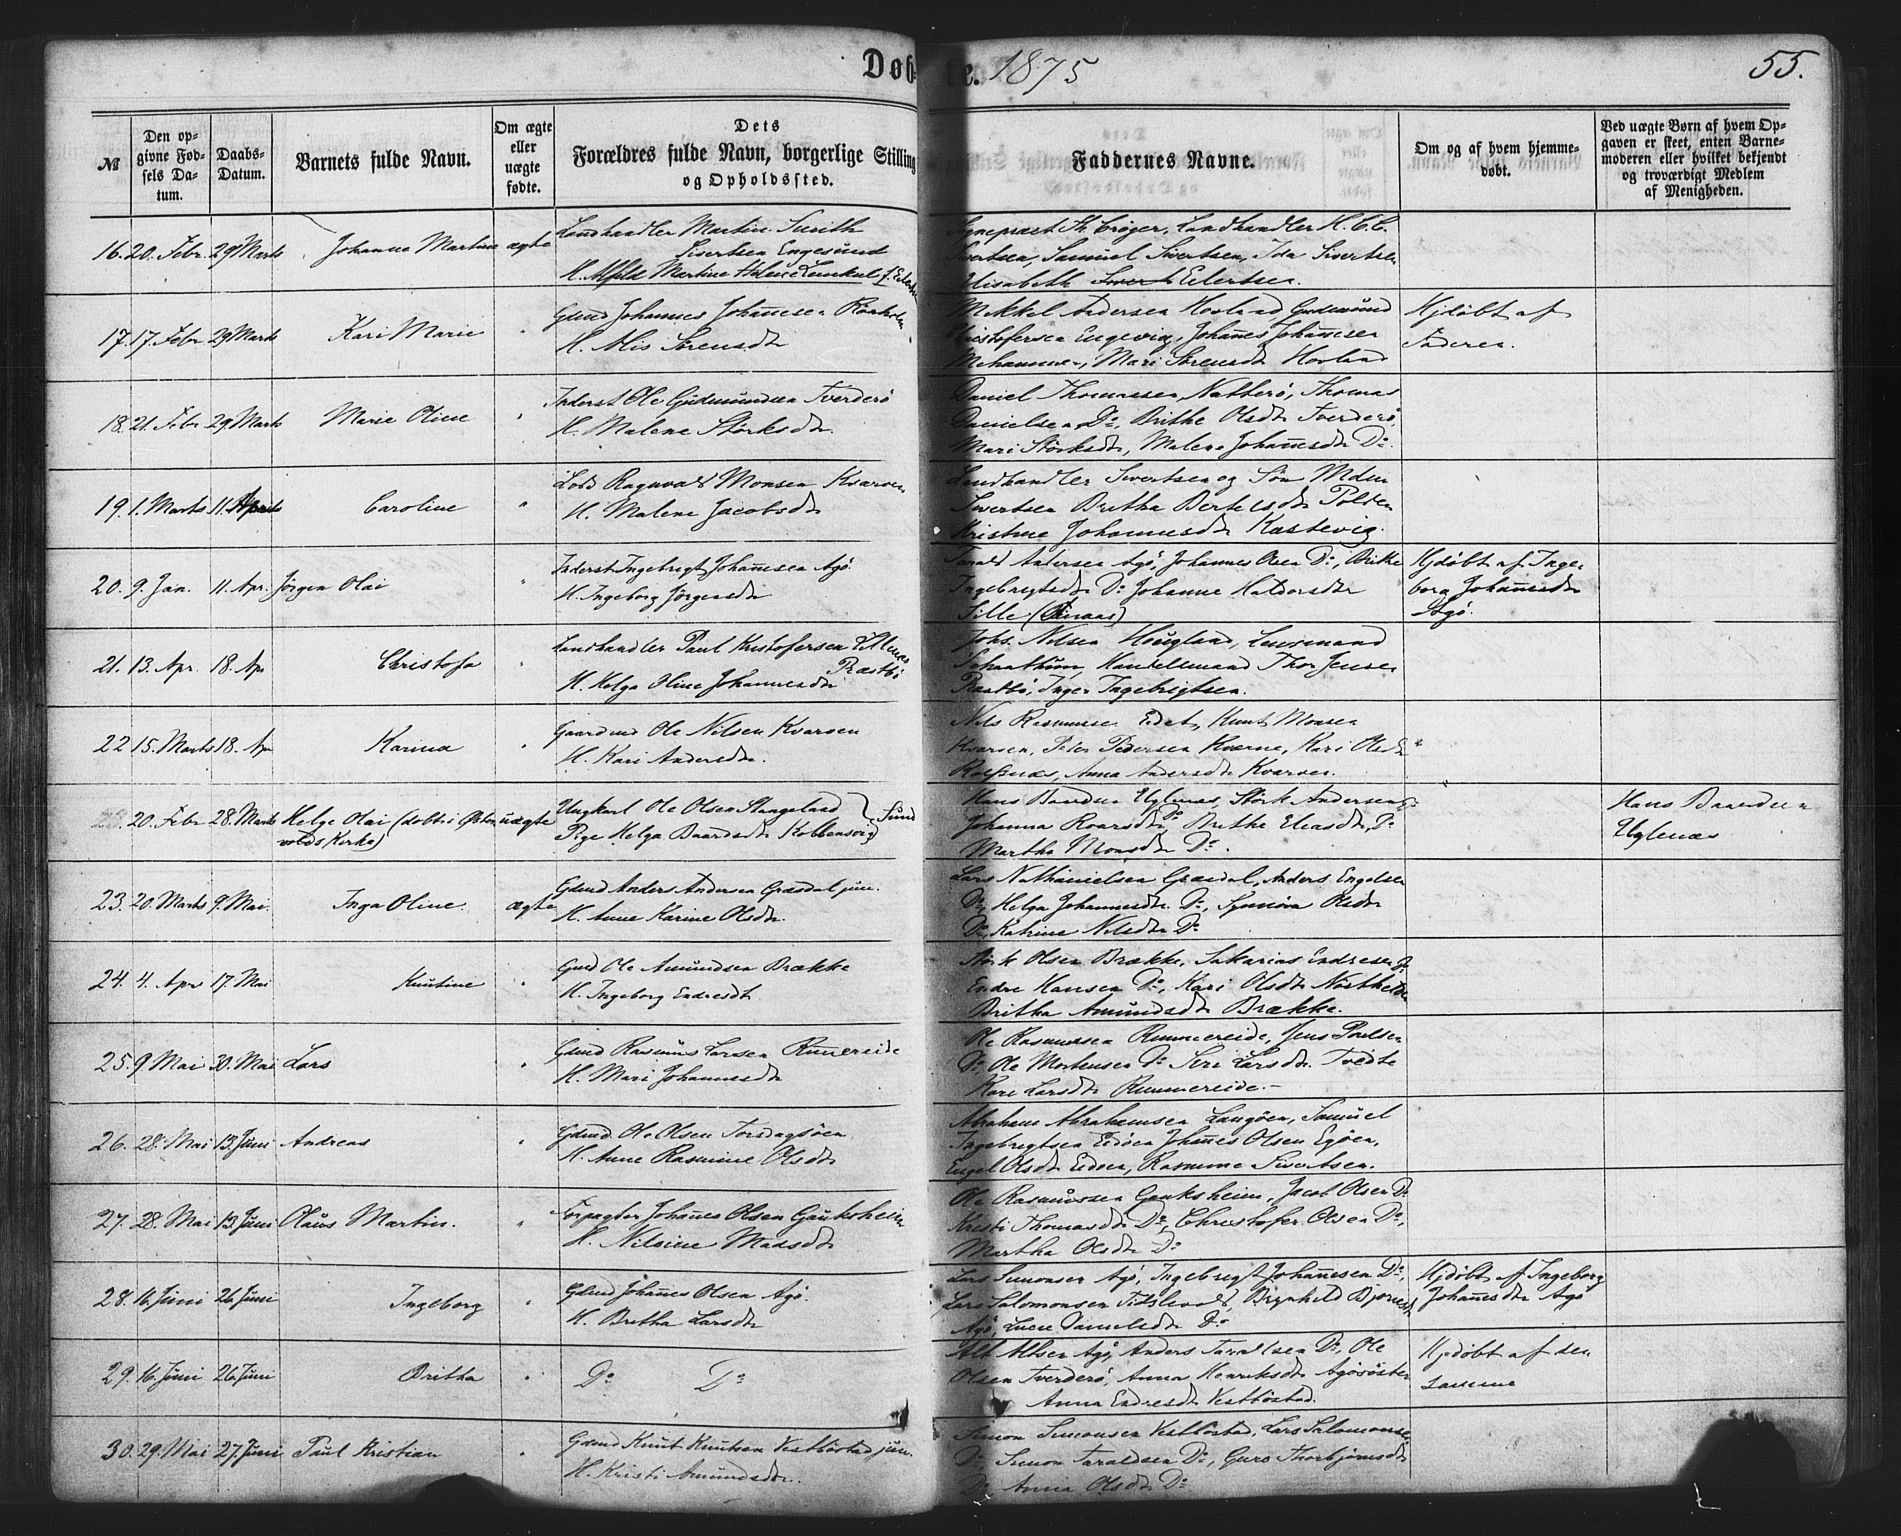 Døb
te. 1875
55.
№
Den opgivne Fødsels Datum.
Daabs-Datum.
Barnets fulde Navn.
Om ægte eller uægte fødte.
Dets Forældres fulde Navn, borgerlige Stilling og Opholdssted.
Faddernes Navne.
Om og af hvem hjemmedøbt.
Ved uægte Børn af hvem Opgaven er skeet, enten Barnemoderen eller hvilket bekjendt og troværdigt Medlem af Menigheden.
16. 20. Febr. 29 Marts Johanne Martine ægte
Landhandler Martin Smith
Sivertsen Engesund
H. Martine Helene Lemkul f. Eilertsen
Sognepræst Th. Crøger, Landhandler H. C. C.
Sivertsen, Samuel Sivertsen, Ida Sivertsen
Elisabeth Eilertsen.
17. 17. Febr 29 Marts Kari Marie "
Gbmd Johannes Johannesen
H. Alis Sørensdtr
Mikkel Andersen Hovland Gudmund
Christofersen Engevig, Johannes Johannesen
Mari Sørensdtr Hovland
Hjdøbt af
Faderen.
18. 21. Febr 29 Marts Marie Oline "
Inderst Ole Gudmundsen Tverderø
H. Malene Størksdtr.
Daniel Thomassen Natterø, Thomas
Danielsen Do, Brithe Olsdtr Tverderø,
Mari Størksdtr, Malene Johannesdtr Do.
19. 1. Marts 11. April Caroline "
Lods Ragnvald Monsen Kvarven
H. Malene Jacobsdtr
Landhandler Sivertsen og Søn
Sivertsen Britha Bertelsdtr Polden
Kristine Johannesdtr Kastevig.
20. 9. Jan. 11. Apr. Jørgen Olai "
Inderst Ingebrigt Johannesen Agø.
H. Ingeborg Jørgensdtr
Tarald Andersen Agø, Johannes Olsen Do, Brithe
Ingebrigtsdtr Do Johanne Haldorsdtr
Sille
Hjdøbt af Inge
borg Johannesdtr
Agø.
21. 13. Apr. 18. Ap Christofa "
Landhandler Paul Kristofersen Lillenæs
Præstbø
H. Helga Oline Johannesdtr
Johs. Nilsen Hougland, Lensmand
Handelsmand Thor Jensen
Præstbø, Inger Ingebrigtsen.
22 15. Marts 18. Ap Karina "
Gaardmd Ole Nilsen Kvarven
H. Kari Andersdtr.
Nils Rasmussen Eidet, Knut Monsen
Kvarven, Peder Pedersen Kværne, Kari Olsdtr
Anna Andersdtr Kvarven.
20. Febr 28. Marts Helge Olai (døbt i Østen uægte
volds Kirke)
Ungkarl Ole Olsen Stangeland
Pige Helga Baardsdtr Kolbensvig } Sund
Hans Baardsen Uglenæs, Størk Andersen Do
Johanna Roarsdtr Do Brithe Eliasdtr, Do
Martha Monsdtr Do.
Hans Baardsen
Uglenæs
23. 20. Marts 9. Mai. Inga Oline. ægte
Gbmd Anders Andersen Græsdal jun.
H. Anne Karine Olsdtr.
Lars Nathanielsen Græsdal, Anders Engelsen
Do, Helga Johannesdtr Do, Synnøva Olsdtr
Do, Katrine Nilsdtr Do
24. 4. Apr 17. Mai Knutine "
Gmd Ole Amundsen Brække
H. Ingeborg Endresdtr.
Størk Olsen Brække, Sakarias Endresen Do
Endre Hansen Do, Kari Olsdtr
Britha Amundsdtr Brække.
25. 9 Mai 30. Mai Lars "
Gbmd Rasmus Larsen Rimmereide
H. Mari Johannesdtr
Ole Rasmussen Rimmereide, Jens Poulsen
Do, Ole Mortensen Do Siri Larsdtr. Tvedte
Kari Larsdtr Rimmereide.
26. 28. Mai 13. Juni Andreas "
Gbmd. Ole Olsen Torsdagsøen
H. Anne Rasmine Olsdtr
Abraham Abrahamsen Langøen, Samuel
Ingebrigtsen Eidøen Johannes Olsen Egøen,
Engel Olsdtr Eidøen, Rasmine Sivertsen.
27. 28. Mai 13. Juni Olaus Martin. "
Forpagter Johannes Olsen Gauksheim
H. Nilsine Madsdtr
Ole Rasmussen Gauksheim, Jacob Olsen Do
Kristi Thomasdtr Do, Christofer Olsen Do,
Martha Olsdtr Do
28. 16. Juni 26. Juni Ingeborg "
Gbmd Johannes Olsen Agø.
H. Britha Larsdtr
Lars Simonsen Agø, Ingebrigt Johannesen Do,
Lars Salomonsen Brynhild Bjørnsdtr
Agø, Danielsdtr Do
Hjdøbt af Ingeborg
Johannesdtr Agø
29. 16. Juni 26. Juni Britha "
Do Do
Anders Taraldsen Do, Ole
Olsen Tverderø, Anna Henriksdtr
Anna Endresdtr Vestbøstad.
Hjdøbt af den
samme
30. 29. Mai 27. Juni Paul Kristian "
Gbmd Knut Knutsen Vestbøstad jun.
H. Kristi Amundsdtr.
Simon Simonsen Vestbøstad, Lars Salomonsen
Do, Simon Taraldsen Do, Guro Thorbjørnsdtr
Do, Anna Olsdtr Do